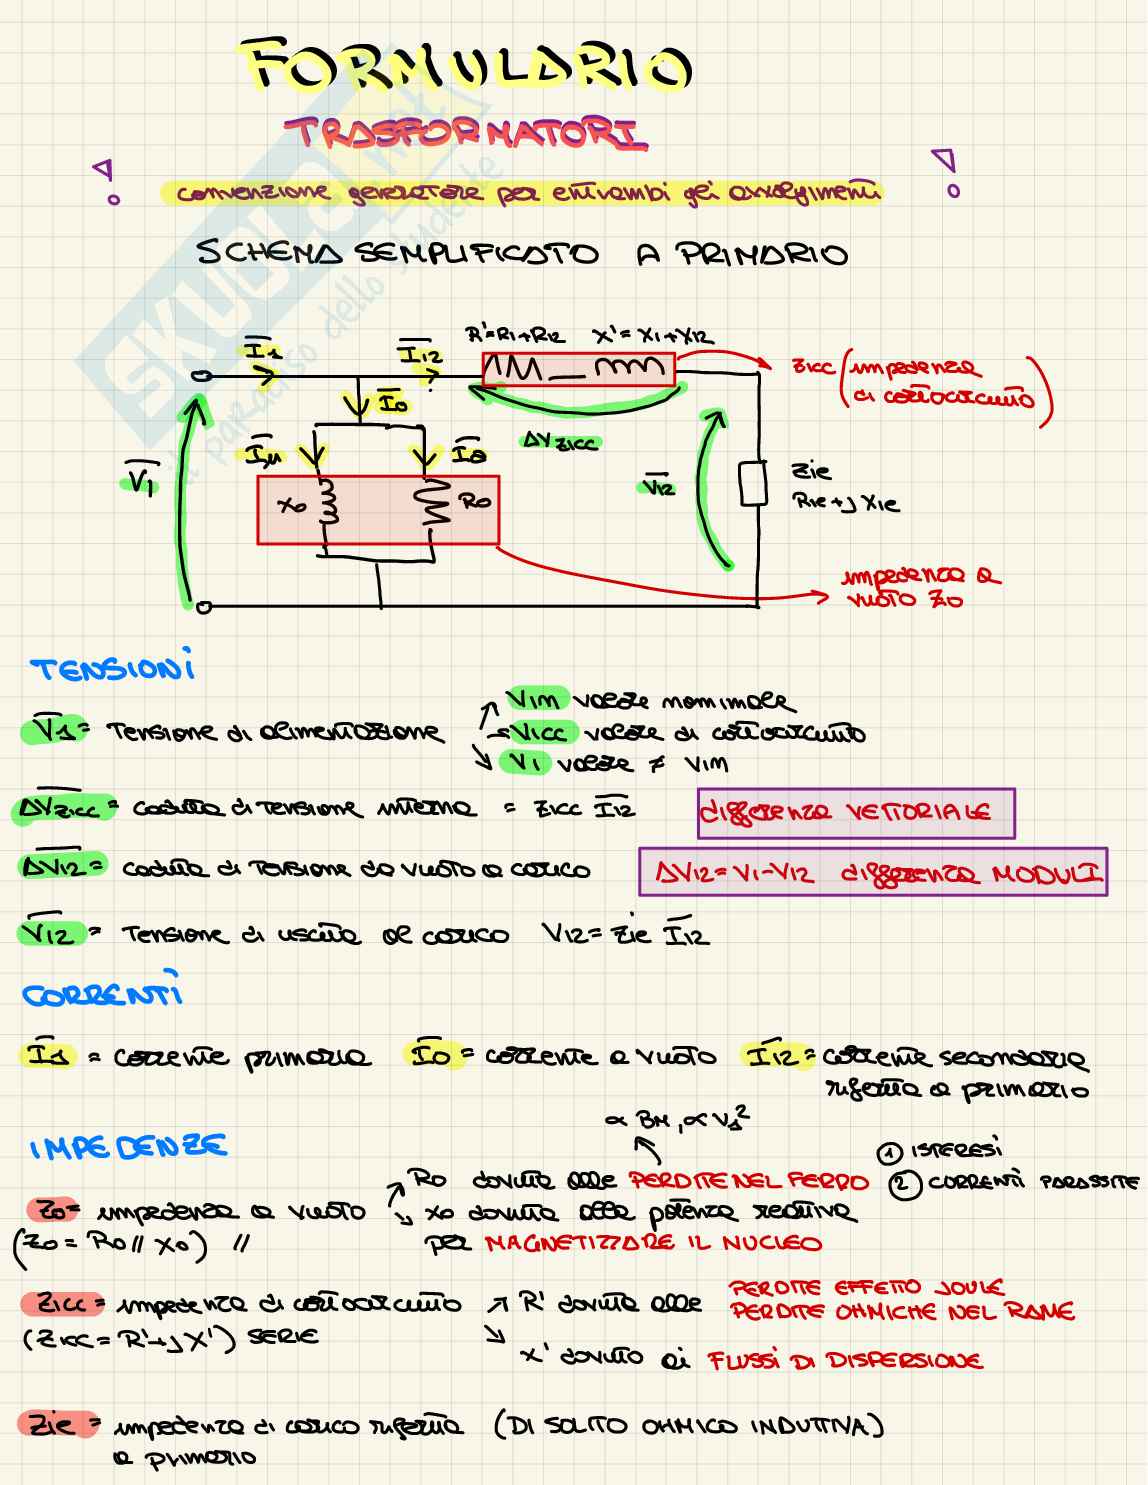 FORMULARIO
TRASFORMATORI
! convenzione generatore per entrambi gli avvolgimenti !
SCHEMA SEMPLIFICATO A PRIMARIO
R'=R1+R12 X'=X1+X12
I1 I12
Z1CC (impedenza di cortocircuito)
I0
ΔVZ1CC
Iμ Ia
V1 V12
Z1e
R1e+jX1e
X0 R0
impedenza a
vuoto Z0
SKUOLA.net
il paradiso dello studente
TENSIONI
V1 = Tensione di alimentazione
V1m valore nominale
V1CC valore di cortocircuito
V1 valore ≠ V1m
ΔVZ1CC = caduta di tensione interna = Z1CC I12 differenza VETTORIALE
ΔV12 = caduta di tensione da vuoto a carico ΔV12 = V1-V12 differenza MODULI
V12 = Tensione di uscita al carico V12 = Z1e I12
CORRENTI
I1 = corrente primaria I0 = corrente a vuoto I12 = corrente secondaria
riferita a primario
IMPEDENZE
∝ BM, ∝ V1²
① ISTERESI
② CORRENTI PARASSITE
R0 dovuta alle PERDITE NEL FERRO
Z0 = impedenza a vuoto
X0 dovuta alla potenza reattiva
(Z0 = R0 // X0) //
per MAGNETIZZARE IL NUCLEO
Z1CC = impedenza di cortocircuito
R' dovuta alle PERDITE EFFETTO JOULE
PERDITE OHMICHE NEL RAME
(Z1CC = R'+jX') SERIE
X' dovuto ai FLUSSI DI DISPERSIONE
Z1e = impedenza di carico riferita (DI SOLITO OHMICO INDUTTIVA)
a primario